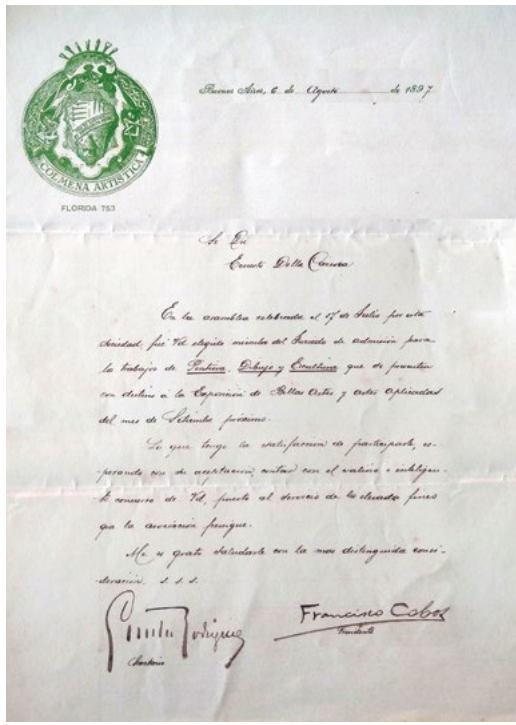 COLMENA ARTISTICA
FLORIDA 753
Buenos Aires, 6 de Agosto de 1897
Sr Dr
Ernesto Della Cárcova
En la asamblea celebrada el 17 de Julio por esta
sociedad, fué Vd elegido miembro del Jurado de admisión para
los trabajos de Pintura, Dibujo y Escultura que se presenten
con destino á la Exposición de Bellas Artes y artes aplicadas
del mes de Setiembre próximo.
Lo que tengo la satisfaccion de participarle, es-
perando con su aceptación contar con el valioso é intelijen-
te concurso de Vd, puesto al servicio de los elevados fines
que la asociación persigue.
Me es grato saludarle con la mas distinguida consi-
deración. S. S. S.
Rodriguez
Secretario
Francisco Cobos
Presidente